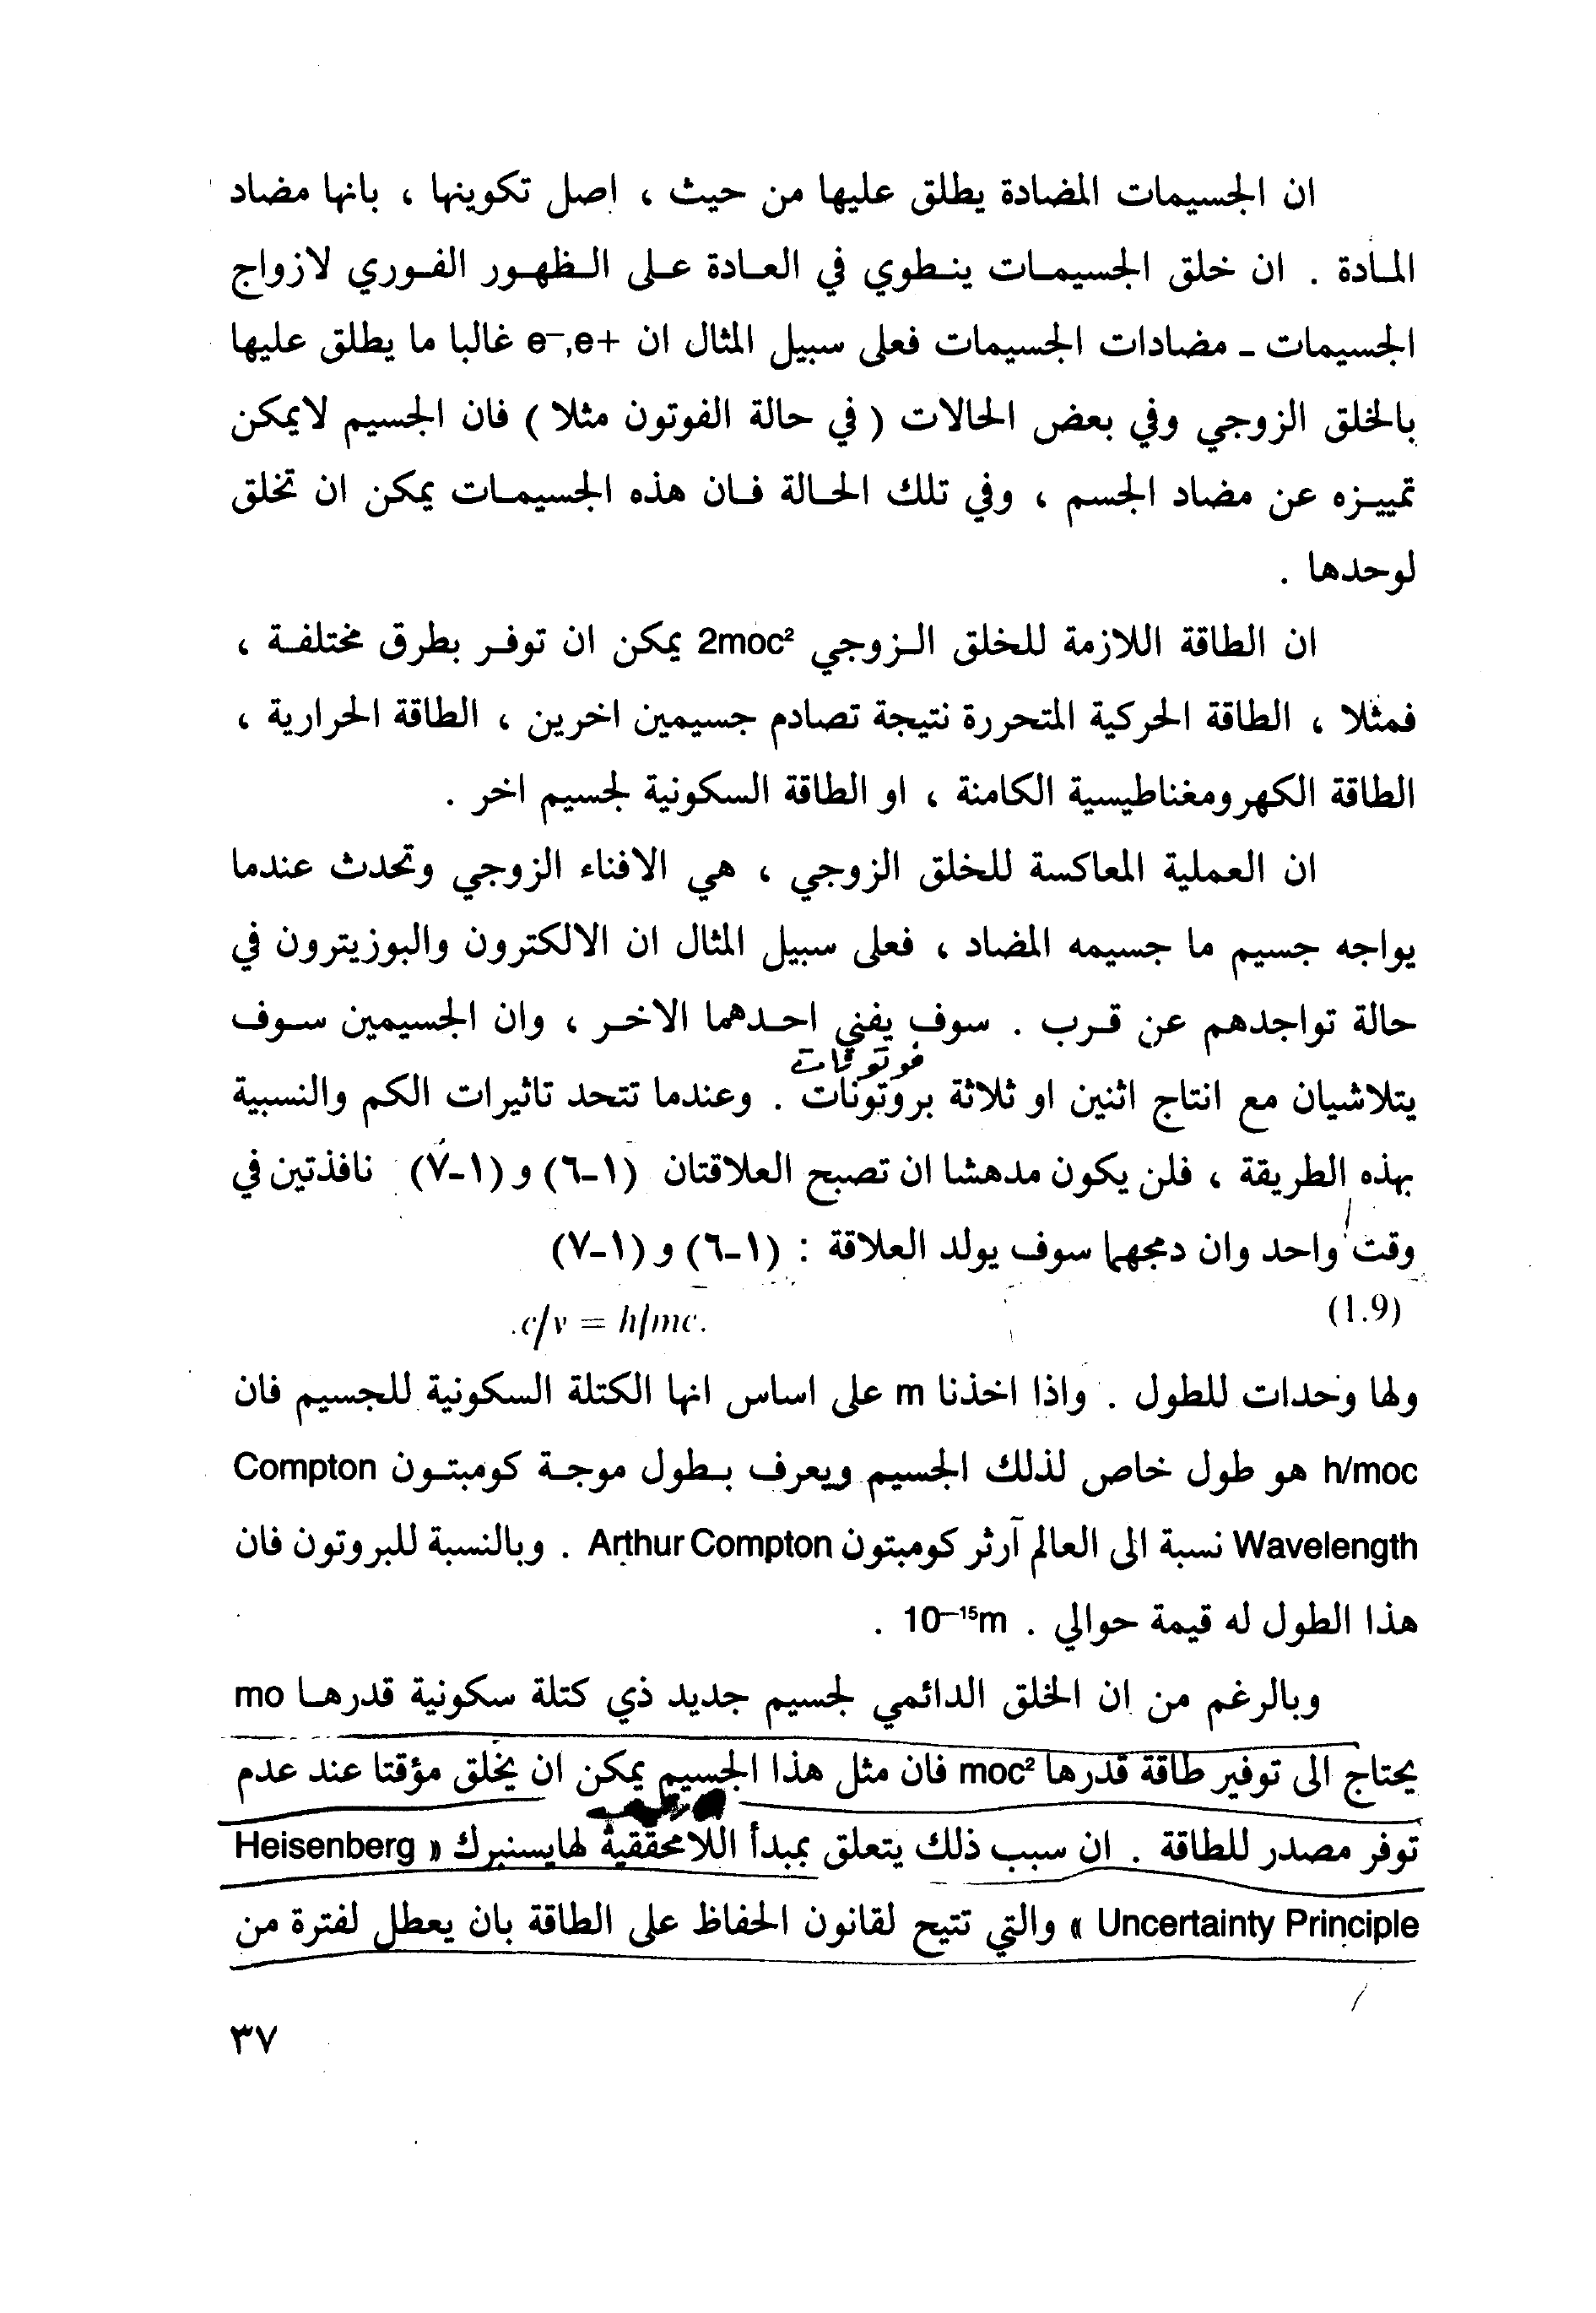 ان الجسيمات المضادة يطلق عليها من حيث ، اصل تكوينها ، بانها مضاد
المادة . ان خلق الجسيمات ينطوي في العادة على الظهور الفوري لازواج
الجسيمات - مضادات الجسيمات فعلى سبيل المثال ان e−,e+ غالبا ما يطلق عليها
بالخلق الزوجي وفي بعض الحالات ( في حالة الفوتون مثلا ) فان الجسيم لايمكن
تمييزه عن مضاد الجسم ، وفي تلك الحالة فان هذه الجسيمات يمكن ان تخلق
لوحدها .
ان الطاقة اللازمة للخلق الزوجي 2moc² يمكن ان توفر بطرق مختلفة ،
فمثلا ، الطاقة الحركية المتحررة نتيجة تصادم جسيمين اخرين ، الطاقة الحرارية ،
الطاقة الكهرومغناطيسية الكامنة ، او الطاقة السكونية لجسيم اخر .
ان العملية المعاكسة للخلق الزوجي ، هي الافناء الزوجي وتحدث عندما
يواجه جسيم ما جسيمه المضاد ، فعلى سبيل المثال ان الالكترون والبوزيترون في
حالة تواجدهم عن قرب . سوف يفني احدهما الاخر ، وان الجسيمين سوف
فوتونات
يتلاشيان مع انتاج اثنين او ثلاثة بروتونات . وعندما تتحد تاثيرات الكم والنسبية
بهذه الطريقة ، فلن يكون مدهشا ان تصبح العلاقتان (١-٦) و (١-٧) نافذتين في
وقت واحد وان دمجهما سوف يولد العلاقة : (١-٦) و (١-٧)
(1.9) .c/v = h/mc.
ولها وحدات للطول . واذا اخذنا m على اساس انها الكتلة السكونية للجسيم فان
h/moc هو طول خاص لذلك الجسيم ويعرف بطول موجة كومبتون Compton
Wavelength نسبة الى العالم آرثر كومبتون Arthur Compton . وبالنسبة للبروتون فان
هذا الطول له قيمة حوالي . 10−¹⁵m .
وبالرغم من ان الخلق الدائمي لجسيم جديد ذي كتلة سكونية قدرها mo
يحتاج الى توفير طاقة قدرها moc² فان مثل هذا الجسيم يمكن ان يخلق مؤقتا عند عدم
توفر مصدر للطاقة . ان سبب ذلك يتعلق بمبدأ اللامحققية لهايسنبرك « Heisenberg
Uncertainty Principle » والتي تتيح لقانون الحفاظ على الطاقة بان يعطل لفترة من
٣٧